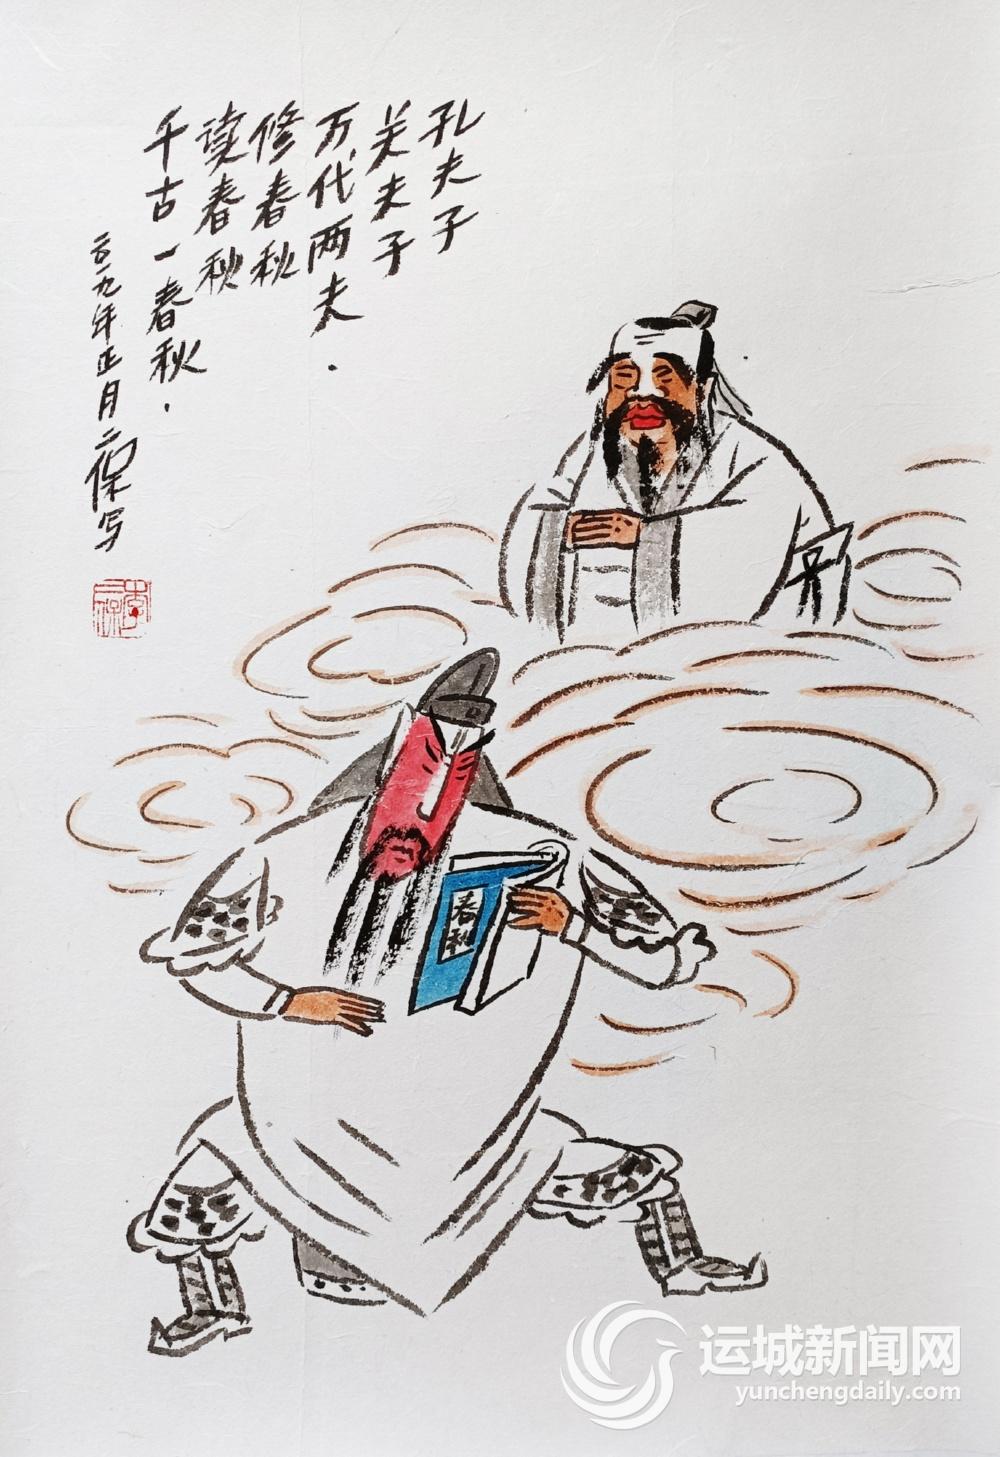 孔夫子
关夫子
万代两夫.
修春秋
读春秋
千古一春秋.
二〇一九年正月二保写
春秋
运城新闻网
yunchengdaily.com